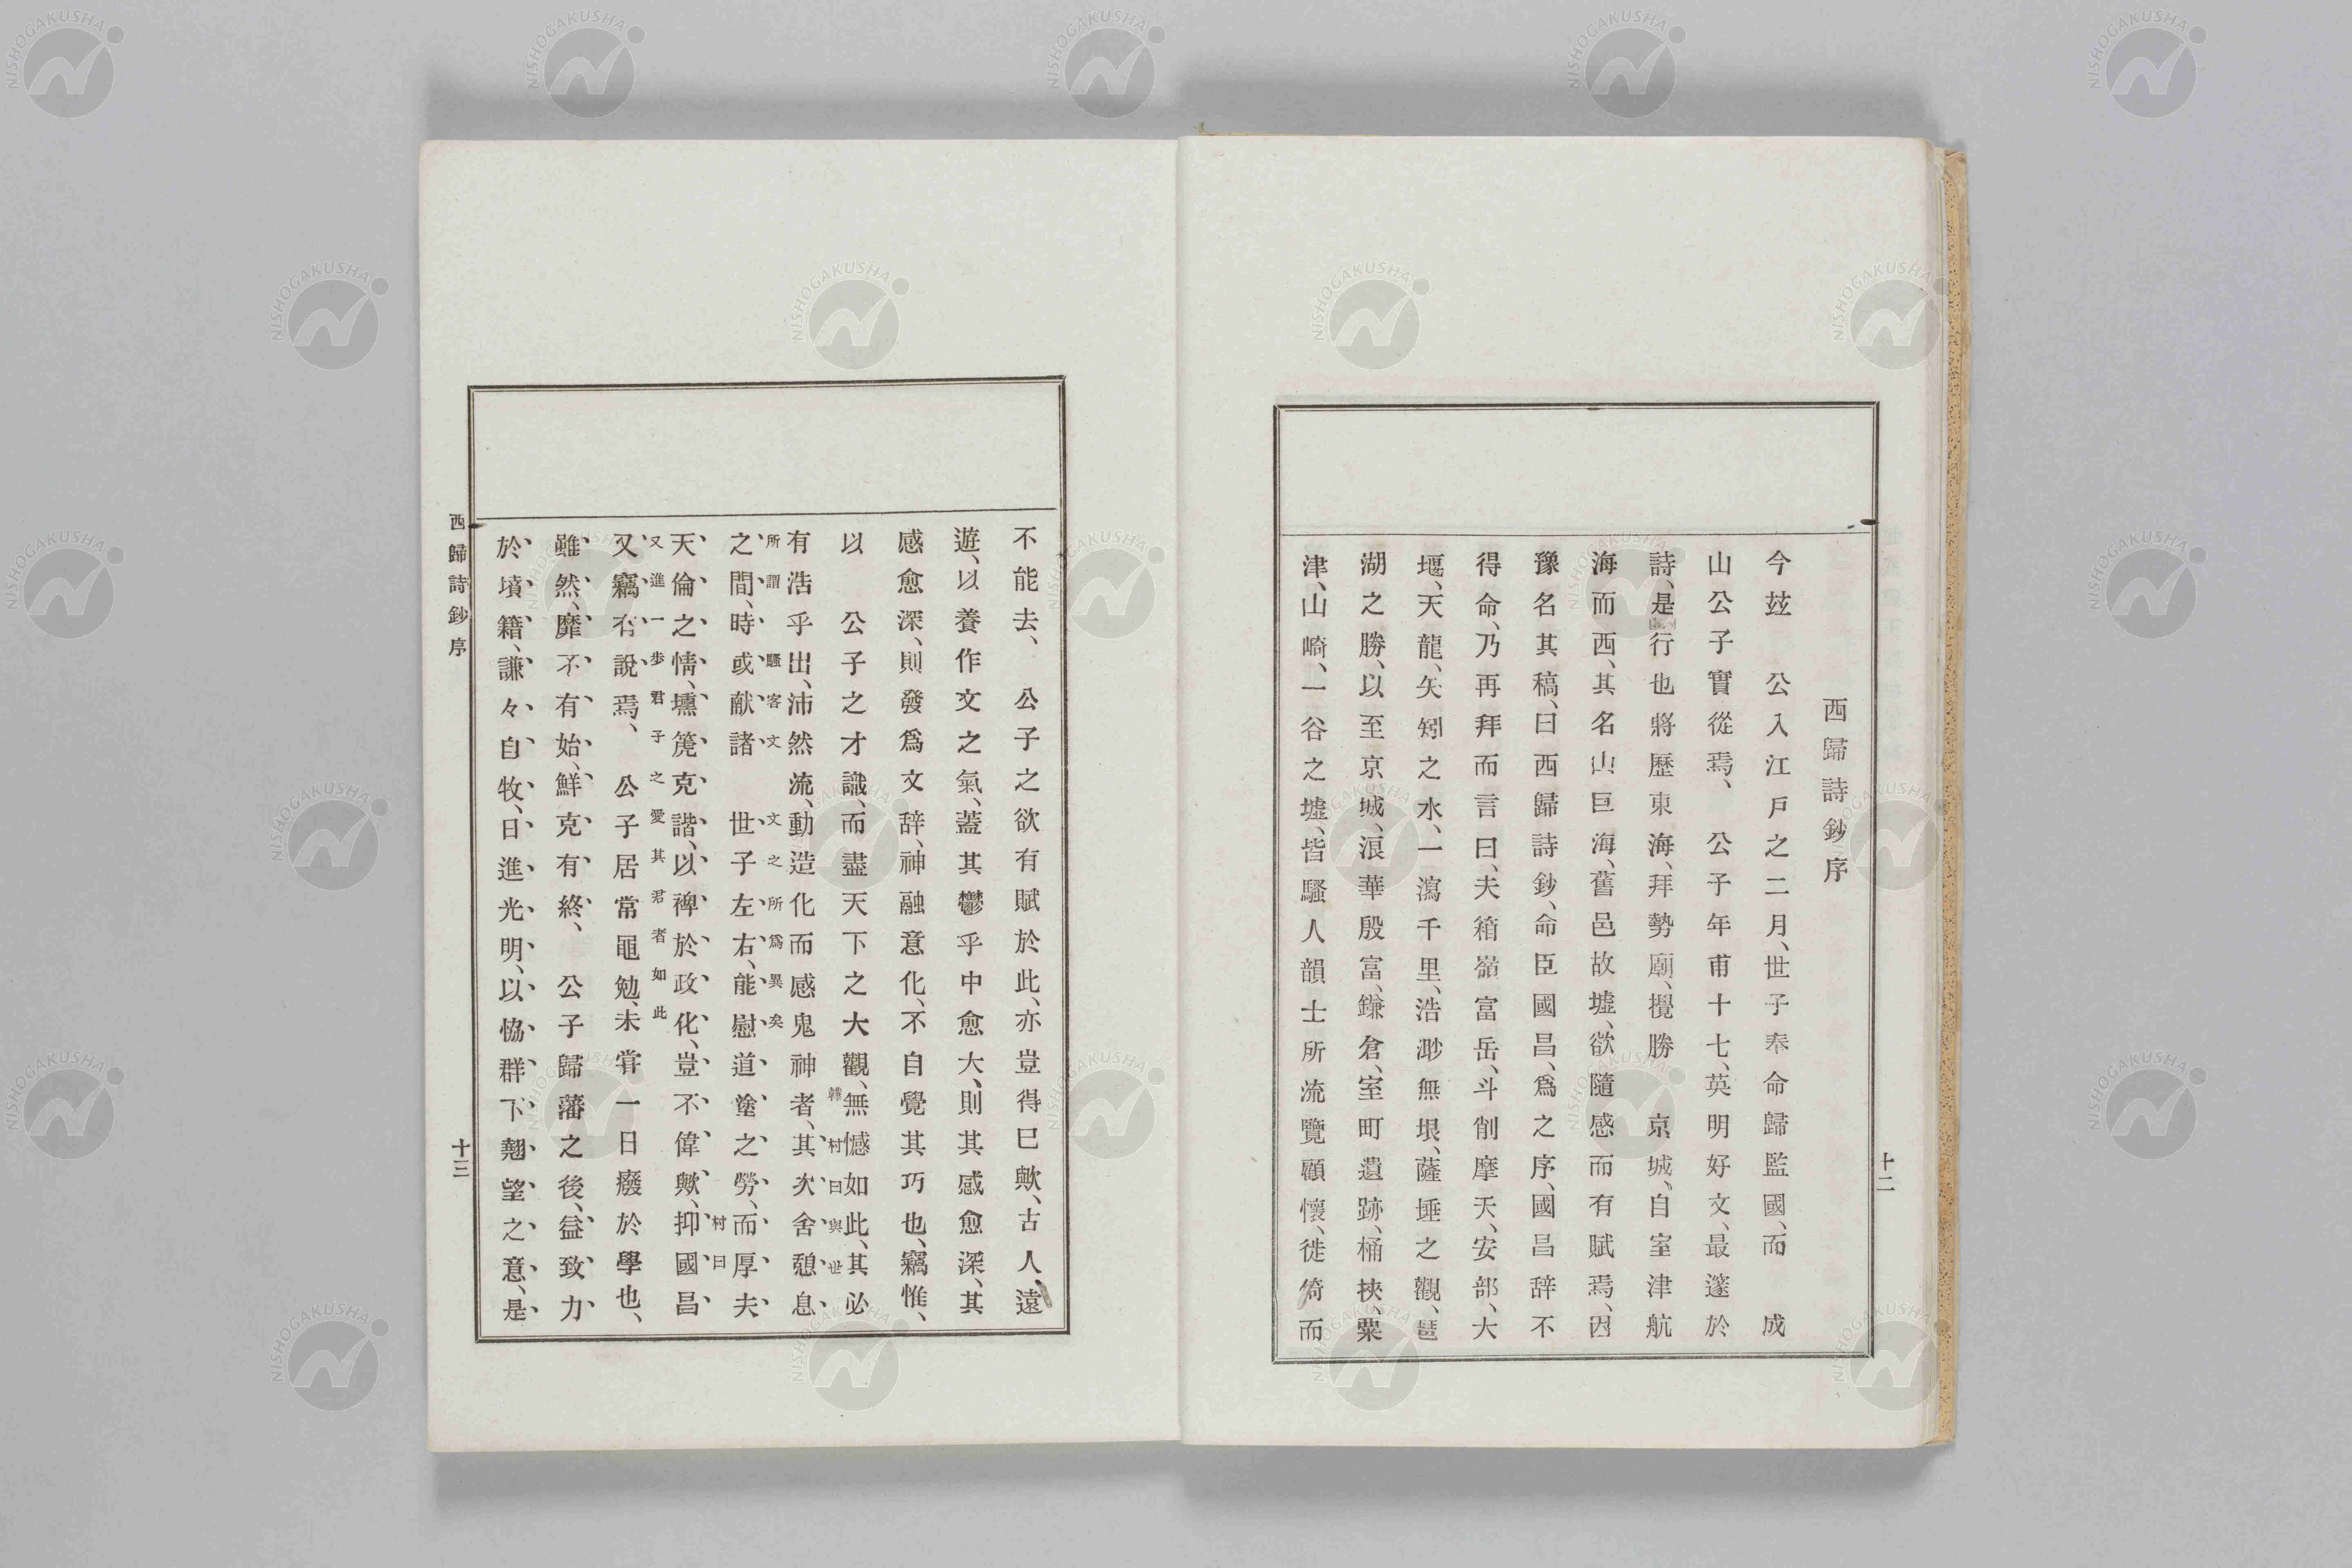 西歸詩鈔序
今玆　公入江戶之二月、世子奉命歸監國、而　成
山公子實從焉、　公子年甫十七、英明好文、最邃於
詩、是行也將歷東海、拜勢廟、攬勝　京城、自室津航
海而西、其名山巨海、舊邑故墟、欲隨感而有賦焉、因
豫名其稿、曰西歸詩鈔、命臣國昌、爲之序、國昌辭不
得命、乃再拜而言曰、夫箱嶺富岳、斗削摩天、安部、大
堰、天龍、矢矧之水、一瀉千里、浩渺無垠、薩埵之觀、琶
湖之勝、以至京城、浪華殷富、鎌倉、室町遺跡、桶挾、粟
津、山崎、一谷之墟、皆騷人韻士所流覽顧懷、徙倚而
十二
不能去、　公子之欲有賦於此、亦豈得巳歟、古人遠
遊、以養作文之氣、蓋其鬱乎中愈大、則其感愈深、其
感愈深、則發爲文辭、神融意化、不自覺其巧也、竊惟、
以　公子之才識、而盡天下之大觀、無憾如此、其必
有浩乎出、沛然　流、動造化而感鬼神者、其次舍憩息
韓村曰與世
所謂騷客文文之所爲異矣
之間、時或献諸　世子左右、能慰道塗之勞、而厚夫
天倫之情、壎箎克諧、以裨於政化、豈不偉歟、抑國昌
村曰
又進一步君子之愛其君者如此
又竊有說焉、　公子居常黽勉、未甞一日廢於學也、
雖然、靡不有始、鮮克有終、　公子歸藩之後、益致力
於墳籍、謙々自牧、日進光明、以恊群下翹望之意、是
西歸詩鈔序
十三
NISHOGAKUSHA